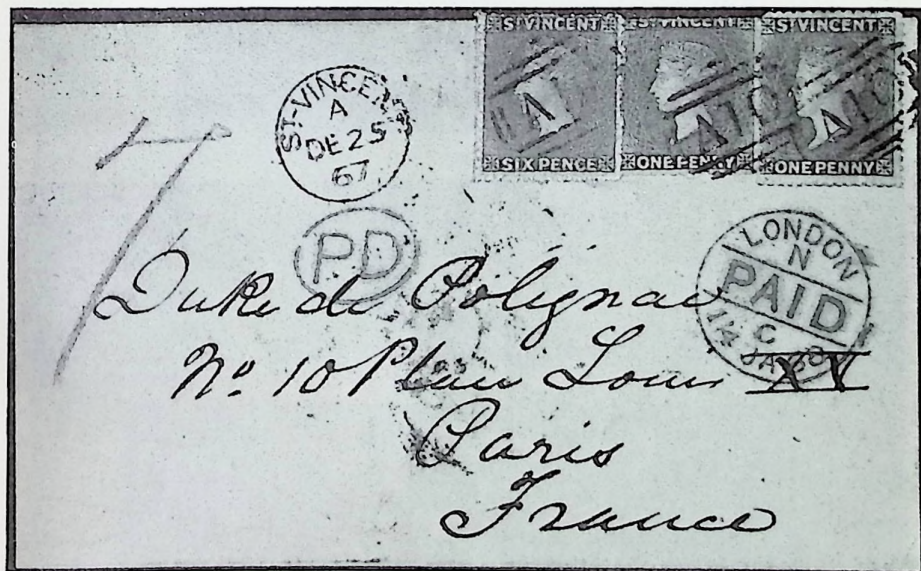 ST VINCENT
SIX PENCE
ST VINCENT
ONE PENNY
ST VINCENT
ONE PENNY
A10
A10
ST-VINCENT
A
DE 25
67
7
PD
LONDON
N
PAID
C
14 JA 68
Duke de Polignac
No. 10 Place Louis XV
Paris
France